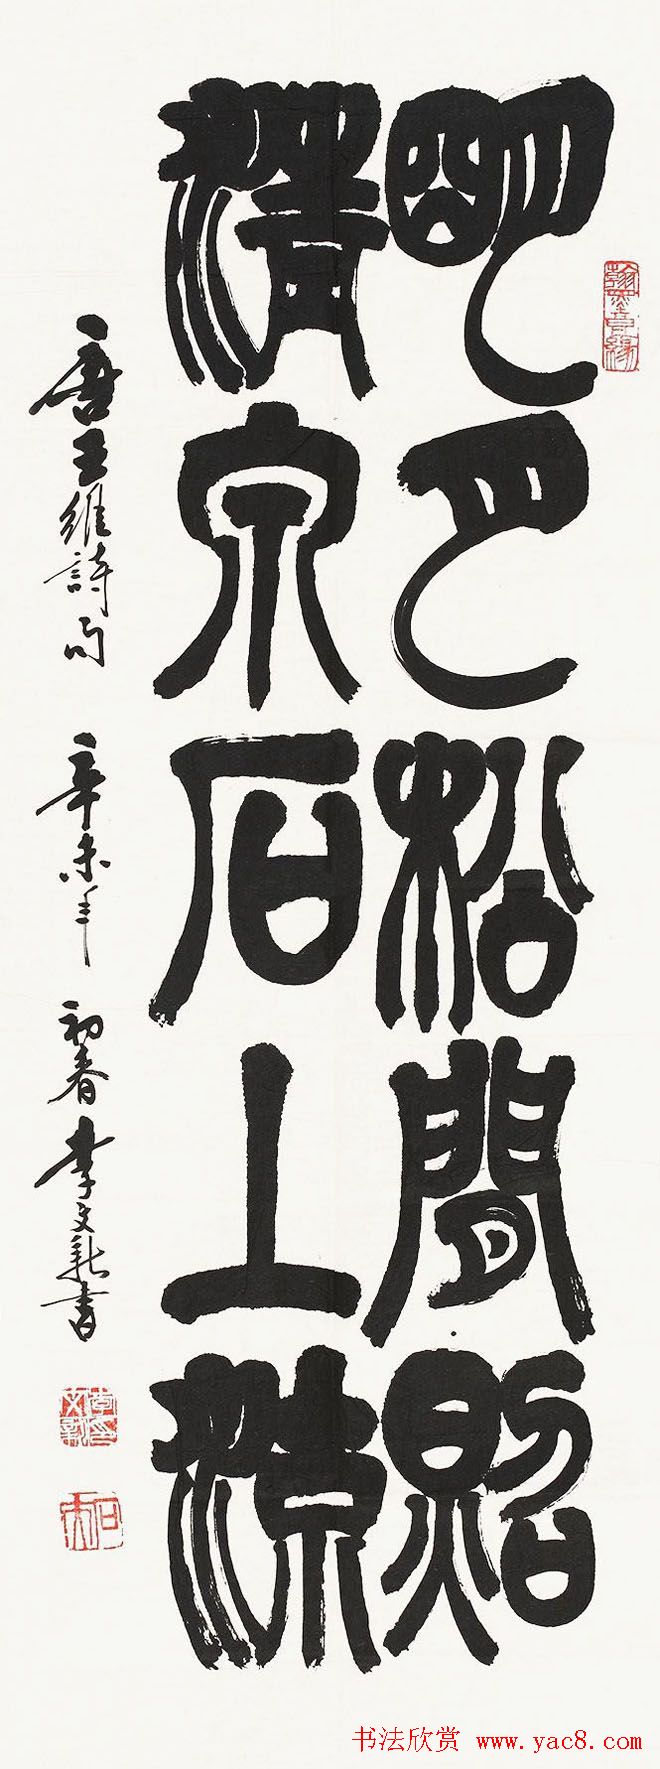 明月松間照
清泉石上流
唐王維詩句 辛未年 初春 李文新書
书法欣赏 www.yac8.com